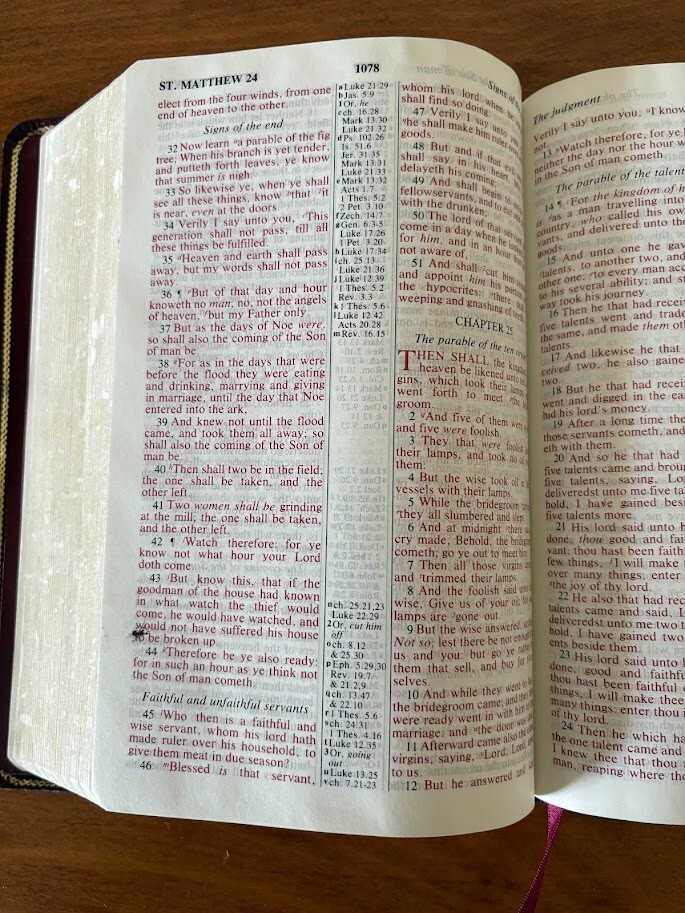 ST. MATTHEW 24
1078
elect from the four winds, from one
end of heaven to the other.
Signs of the end
32 Now learn ᵃa parable of the fig
tree; When his branch is yet tender,
and putteth forth leaves, ye know
that summer is nigh:
33 So likewise ye, when ye shall
see all these things, know ᵇthat ¹it
is near, even at the doors.
34 Verily I say unto you, ᶜThis
generation shall not pass, till all
these things be fulfilled.
35 ᵈHeaven and earth shall pass
away, but my words shall not pass
away.
36 ¶ ᵉBut of that day and hour
knoweth no man, no, not the angels
of heaven, ᶠbut my Father only.
37 But as the days of Noe were,
so shall also the coming of the Son
of man be.
38 ᵍFor as in the days that were
before the flood they were eating
and drinking, marrying and giving
in marriage, until the day that Noe
entered into the ark,
39 And knew not until the flood
came, and took them all away; so
shall also the coming of the Son of
man be.
40 ʰThen shall two be in the field;
the one shall be taken, and the
other left.
41 Two women shall be grinding
at the mill; the one shall be taken,
and the other left.
42 ¶ ⁱWatch therefore: for ye
know not what hour your Lord
doth come.
43 ʲBut know this, that if the
goodman of the house had known
in what watch the thief would
come, he would have watched, and
would not have suffered his house
to be broken up.
44 ᵏTherefore be ye also ready:
for in such an hour as ye think not
the Son of man cometh.
Faithful and unfaithful servants
45 ˡWho then is a faithful and
wise servant, whom his lord hath
made ruler over his household, to
give them meat in due season?
46 ᵐBlessed is that servant,
a Luke 21.29
b Jas. 5.9
1 Or, he
c ch. 16.28
Mark 13.30
Luke 21.32
d Ps. 102.26
Is. 51.6
Jer. 31.35
Mark 13.31
Luke 21.33
e Mark 13.32
Acts 1.7
1 Thes. 5.2
2 Pet. 3.10
f Zech. 14.7
g Gen. 6.3-5
Luke 17.26
1 Pet. 3.20
h Luke 17.34
i ch. 25.13
Luke 21.36
j Luke 12.39
1 Thes. 5.2
Rev. 3.3
k 1 Thes. 5.6
l Luke 12.42
Acts 20.28
m Rev. 16.15
n ch. 25.21,23
Luke 22.29
2 Or, cut him
off
o ch. 8.12
& 25.30
p Eph. 5.29,30
Rev. 19.7
& 21.2,9
q ch. 13.47
& 22.10
r 1 Thes. 5.6
s ch. 24.31
1 Thes. 4.16
t Luke 12.35
3 Or, going
out
u Luke 13.25
v ch. 7.21-23
Signs of
whom his lord when he
shall find so doing.
47 Verily I say unto
ⁿhe shall make him ruler
goods.
48 But and if that evil
shall say in his heart,
delayeth his coming;
49 And shall begin to
fellowservants, and to eat
with the drunken;
50 The lord of that servant
come in a day when he looketh
for him, and in an hour
not aware of,
51 And shall ²cut him
and appoint him his portion
the hypocrites: ᵒthere shall
weeping and gnashing of
CHAPTER 25
The parable of the ten
THEN SHALL the kingdom
heaven be likened unto
gins, which took their lamps,
went forth to meet ᵖthe
groom.
2 ᵠAnd five of them
and five were foolish.
3 They that were foolish
their lamps, and took no
them:
4 But the wise took oil
vessels with their lamps.
5 While the bridegroom
ʳthey all slumbered and slept.
6 And at midnight ˢthere
cry made, Behold, the bridegroom
cometh; go ye out to meet him.
7 Then all those virgins
and ᵗtrimmed their lamps.
8 And the foolish said
wise, Give us of your oil;
lamps are ³gone out.
9 But the wise answered,
Not so; lest there be not enough
us and you: but go ye
them that sell, and buy for
selves.
10 And while they went to
the bridegroom came; and they
were ready went in with him
marriage: and ᵘthe door was
11 Afterward came also the
virgins, saying, ᵛLord, Lord,
to us.
12 But he answered and
The judgment
Verily I say unto you, I know
not.
13 Watch therefore, for ye
neither the day nor the hour
in the Son of man cometh.
The parable of the talents
14 ¶ For the kingdom of
is as a man travelling into
country, who called his own
vants, and delivered unto
goods.
15 And unto one he gave
talents, to another two, and
other one; to every man
to his several ability; and
way took his journey.
16 Then he that had received
five talents went and traded
the same, and made them
talents.
17 And likewise he that
ceived two, he also gained
two.
18 But he that had received
went and digged in the earth,
hid his lord's money.
19 After a long time the
those servants cometh, and
eth with them.
20 And so he that had
five talents came and brought
five talents, saying, Lord,
deliveredst unto me five
hold, I have gained beside
five talents more.
21 His lord said unto
done, thou good and
vant: thou hast been faithful
few things, I will make
over many things: enter
the joy of thy lord.
22 He also that had received
talents came and said,
deliveredst unto me two
hold, I have gained two
ents beside them.
23 His lord said unto
done, good and faithful
thou hast been faithful
things, I will make thee
many things: enter thou
of thy lord.
24 Then he which had
the one talent came and
I knew thee that thou
man, reaping where thou